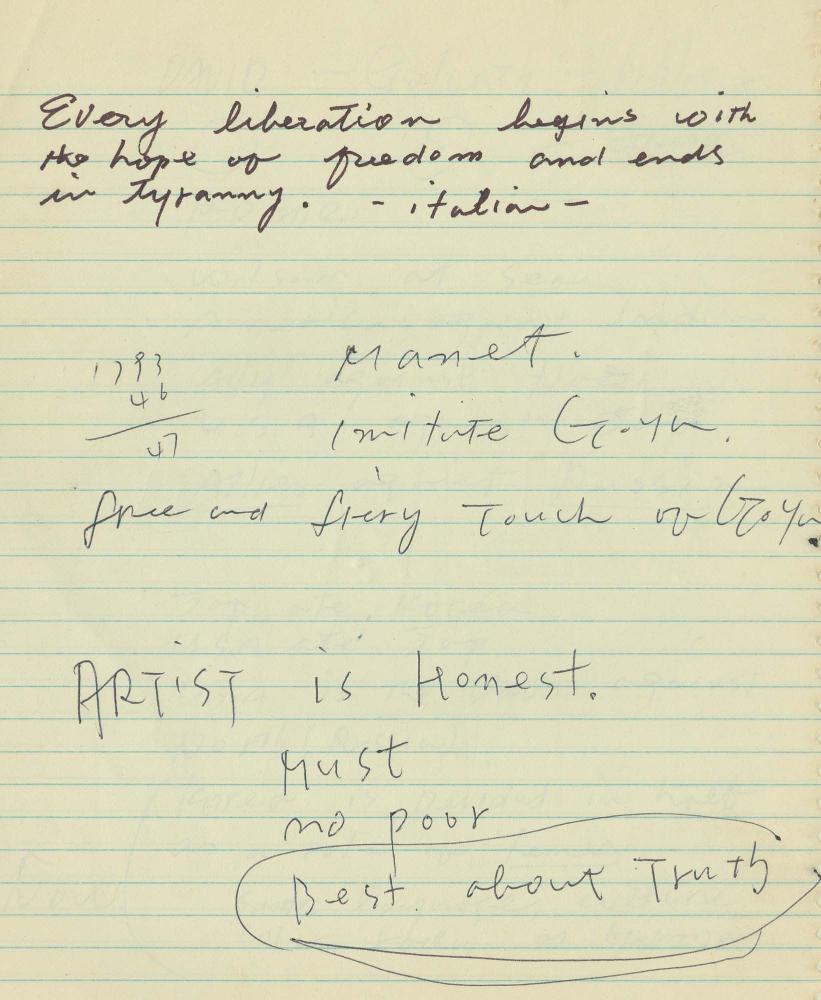 Every liberation begins with
the hope of freedom and ends
in tyranny. - italian -
Manet.
1793
46
47
imitate Goya.
free and fiery Touch of Goya
ARTiST is Honest.
Must
no poor
Best about Truth